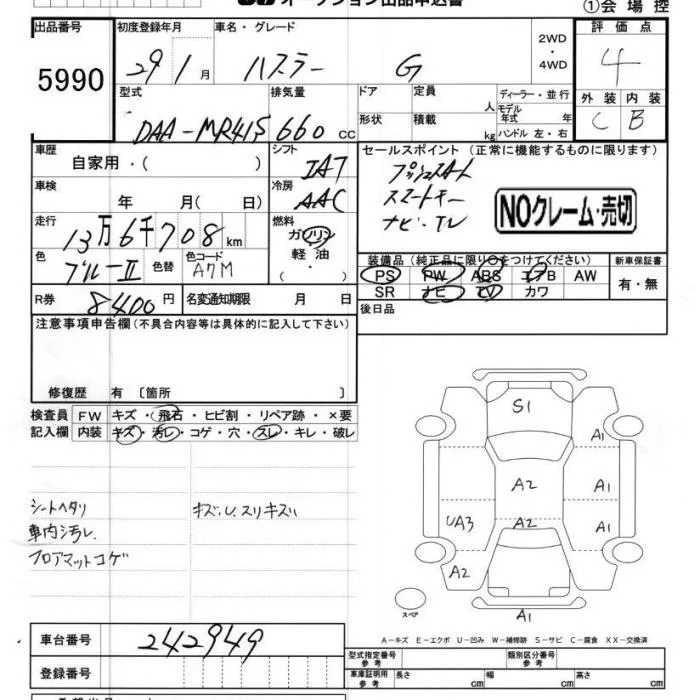 オークション出品申込書
①会場控
出品番号 初度登録年月 車名・グレード 評価点
5990 29 1月 ハスラー G 2WD・4WD 4
型式 排気量 ドア 定員 人 ディーラー・並行 外装 内装
DAA-MR41S 660 cc 形状 積載 kg モデル年式 年 ハンドル 左・右 C B
車歴 自家用・( ) シフト IAT セールスポイント (正常に機能するものに限ります)
車検 年 月( 日) 冷房 AAC プッシュスタート
スマートキー
ナビ・TV
NOクレーム・売切
走行 13万6千708 km 燃料 ガソリン 軽油 ( ・ )
色 ブルーⅡ 色替 色コード A7M
装備品 (純正品に限り○をつけてください) 新車保証書
PS PW ABS エアB AW 有・無
SR ナビ TV カワ
R券 8400円 名変通知期限 月 日
後日品
注意事項申告欄(不具合内容等は具体的に記入して下さい)
修復歴 有 〔箇所 〕
検査員 FW キズ・飛石・ヒビ割・リペア跡・×要
記入欄 内装 キズ・汚レ・コゲ・穴・スレ・キレ・破レ
シートヘタリ
車内汚レ
フロアマットコゲ
キズ、U、スリキズ
S1
A1
A2 A1
UA3 A2 A1
A2
スペア
A1
A-キズ E-エクボ U-凹み W-補修跡 S-サビ C-腐食 XX-交換済
車台番号 242949
型式指定番号 参考 類別区分番号 参考
登録番号
車庫証明用 参考 長さ cm 幅 cm 高さ cm